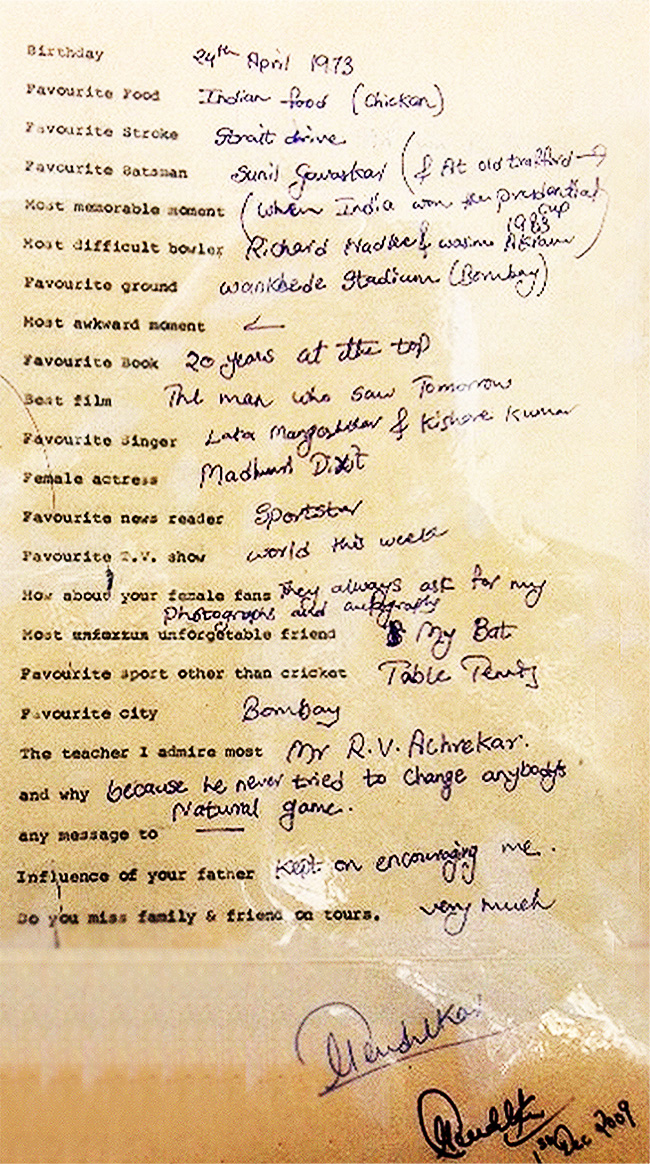 Birthday 24th April 1973
Favourite Food Indian food (Chicken)
Favourite Stroke Strait drive
Favourite Batsman Sunil Gavaskar (& At old trafford →
Most memorable moment (When India won the presidential cup
1983
Most difficult bowler Richard Hadlee & wasim Akram)
Favourite ground wankhede Stadium (Bombay)
Most awkward moment ←
Favourite Book 20 years at the top
Best film The man who saw Tomorrow
Favourite Singer Lata Mangeshkar & Kishore Kumar
Female actress Madhuri Dixit
Favourite news reader Sportstar
Favourite T.V. show world this week
How about your female fans They always ask for my
photographs and autographs
Most unforgetable friend My Bat
Favourite sport other than cricket Table Tennis
Favourite city Bombay
The teacher I admire most Mr R.V. Achrekar.
and why because he never tried to change anybody's
Natural game.
any message to —
Influence of your father Kept on encouraging me.
Do you miss family & friend on tours. very much
Tendulkar
Tendulkar
1st Dec 2009